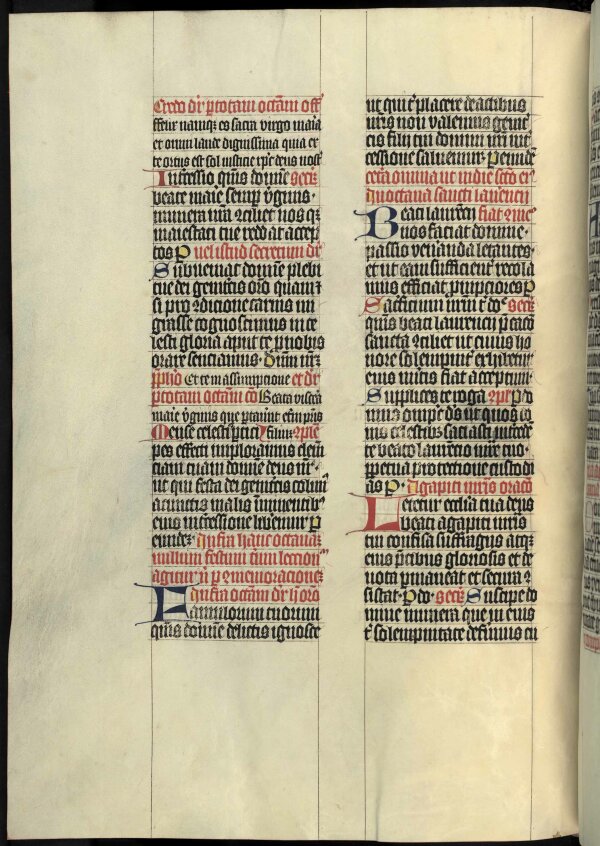 Credo dr̄ p totam octam̄ off
fertur namq̄ȝ es sacra virgo maria
et omni laude dignissima quia ex
te ortus est sol iusticie xp̄c deus nost̄
Intercessio q̄sumus domine secr̄
beate marie semp v̄ginis
munera nr̄a ꝯciliet nos q̄ȝ
maiestati tue reddat accep
tos P vel istud secretum dr̄
Subueniat domine plebi
tue dei genitricis or̄o quam ⁊
si pro ꝯdicione carnis mi
grasse cognoscimus in ce
lesti gloria aput te p nobis
orare senciamus
p̄fatio Et te in assumptione et dr̄
p totam octam̄ co Beata viscera
marie v̄ginis que portauerunt et̄ni pr̄is
Mense celestis p̄tici filium ꝯple
pes effecti imploramus clem̄
ciam tuam domine deus nr̄
ut qui festa dei genitricis colim̄
a cunctis malis iminentibȝ
eius intercessione liberemur P
eundeȝ Infra hanc octauaȝ
nullum festum cum leccion
agitur n̄ p ꝯmemoracioneȝ
Infra octam̄ dr̄ h̄ or̄o
Famulorum tuorum
q̄sumus domine delictis ignosce
ut qui t̄ placere de actibus
nr̄is non valemus genitri
cis filij tui domini nr̄i int̄
cessione saluemur P eundē
cetera omnia ut in die sc̄to et
In octaua sancti laurencij
Beati laurencij fiat ꝯme
nos faciat domine
passio veneranda letantes
et ut eam sufficient̄ recola
mus efficiat p̄mpciores P
Sacrificium nr̄m t̄ do secr̄
q̄sumus beati laurencij p̄catio
sancta ꝯciliet ut cuius ho
nore solempnit̄ exhibetur
eius meritis fiat acceptum
Supplices te roga ꝯpl̄ P do
mus omp̄c ds̄ ut quos do
nis celestibȝ saciasti intercede
te beato laurencio mr̄e tuo
p̄petua protectione custodi
as P Agapiti mr̄is oracō
Letetur ecclia tua deus
beati agapiti mr̄is
tui confisa suffragijs atq̄ȝ
eius p̄cibus gloriosis et de
uota p̄maneat et secura ꝯ
sistat P do secr̄ Suscipe do
mine munera que in eius
t̄ solempnitate deferimus cu